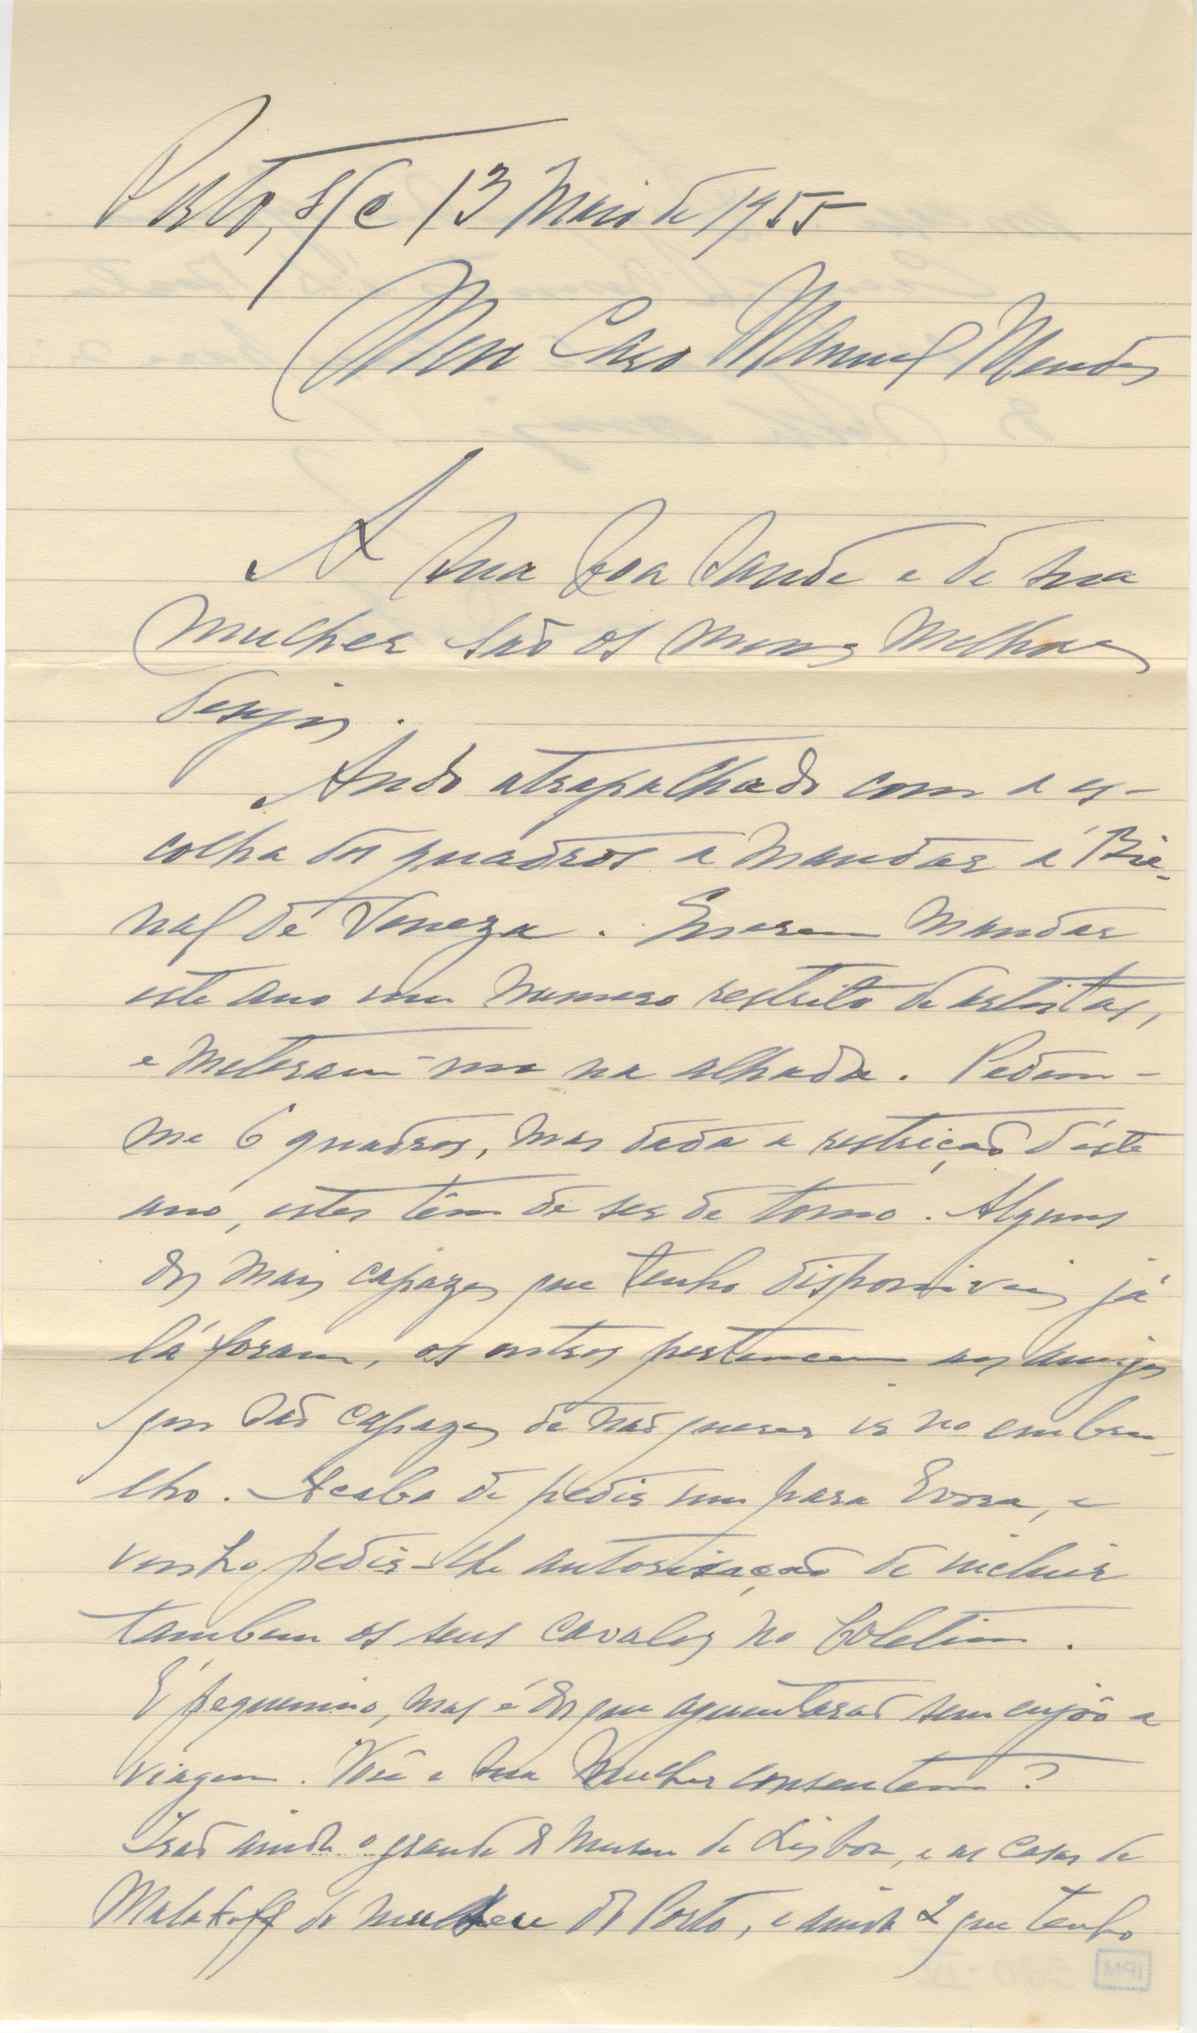 Porto, s/c 13 Maio de 1955
Meu Caro Manuel Mendes
A sua boa saude e de sua
mulher são os meus melhores
desejos.
Ando atrapalhado com a es-
colha dos quadros a mandar á Bie-
nal de Veneza. Querem mandar
este ano um numero restrito de artistas,
e meteram-me na alhada. Pedem-
me 6 quadros, mas dada a restrição d'este
ano, estes têm de ser de tomo. Alguns
dos mais capazes que tenho disponiveis já
lá foram, os outros pertencem aos amigos
que são capazes de não querer ir no embru-
lho. Acabo de pedir um para Evora, e
venho pedir-lhe autorisação de incluir
tambem os seus cavalos no boletim.
É pequenino, mas é dos que aguentarão sem enjôo a
viagem. Você e sua Mulher consentem?
Irão ainda o grande do Museu de Lisboa, e as Casas de
Malakoff do museu do Porto, e ainda 2 que tenho
IPM